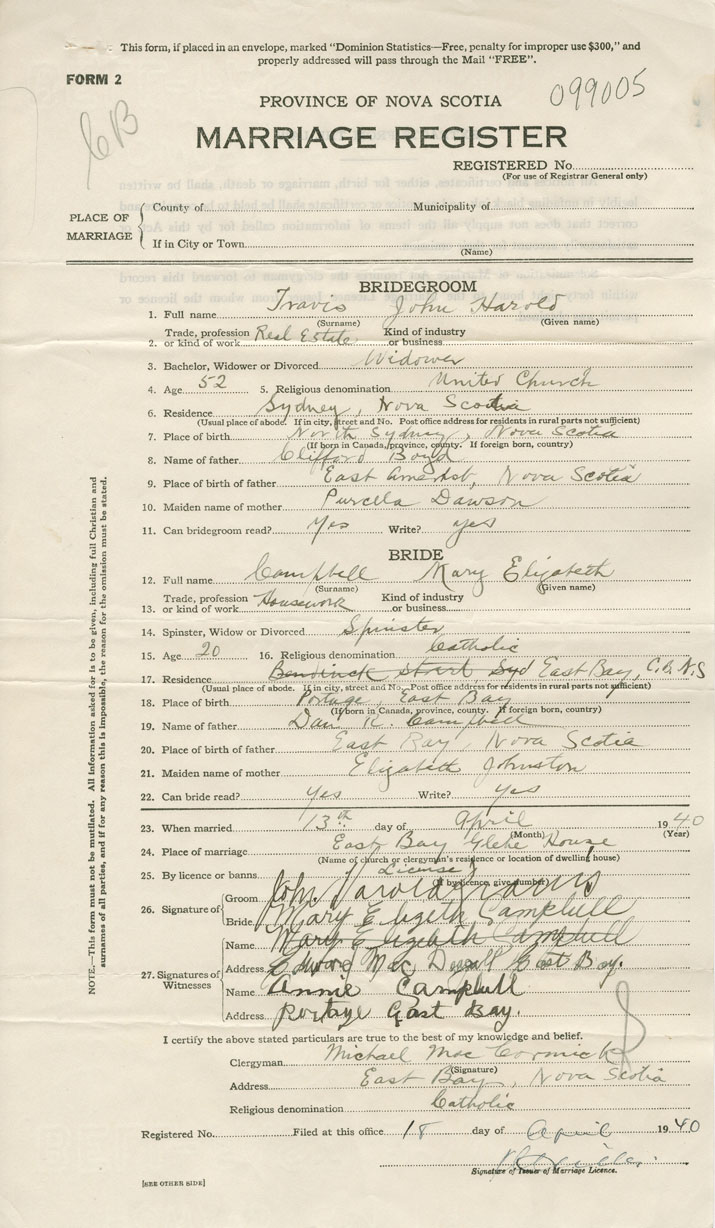 This form, if placed in an envelope, marked "Dominion Statistics—Free, penalty for improper use $300," and
properly addressed will pass through the Mail "FREE".
FORM 2
099005
CB
PROVINCE OF NOVA SCOTIA
MARRIAGE REGISTER
REGISTERED No.
(For use of Registrar General only)
PLACE OF MARRIAGE
County of Municipality of
If in City or Town
(Name)
BRIDEGROOM
1. Full name Travis John Harold
(Surname) (Given name)
Trade, profession Kind of industry
2. or kind of work Real Estate or business
3. Bachelor, Widower or Divorced Widower
4. Age 52 5. Religious denomination United Church
6. Residence Sydney, Nova Scotia
(Usual place of abode. If in city, street and No. Post office address for residents in rural parts not sufficient)
7. Place of birth North Sydney, Nova Scotia
(If born in Canada, province, county. If foreign born, country)
8. Name of father Clifford
9. Place of birth of father East Amherst, Nova Scotia
10. Maiden name of mother Purcella Dawson
11. Can bridegroom read? Yes Write? yes
BRIDE
12. Full name Campbell Mary Elizabeth
(Surname) (Given name)
Trade, profession Kind of industry
13. or kind of work Housework or business
14. Spinster, Widow or Divorced Spinster
15. Age 20 16. Religious denomination Catholic
17. Residence Bentinck Street Syd East Bay, C.B. N.S
(Usual place of abode. If in city, street and No. Post office address for residents in rural parts not sufficient)
18. Place of birth Portage, East Bay
(If born in Canada, province, county. If foreign born, country)
19. Name of father Dan R. Campbell
20. Place of birth of father East Bay, Nova Scotia
21. Maiden name of mother Elizabeth Johnston
22. Can bride read? Yes Write? Yes
23. When married 13th day of April 1940
(Month) (Year)
24. Place of marriage East Bay Glebe House
(Name of church or clergyman's residence or location of dwelling house)
25. By licence or banns License
(If by licence, give number)
26. Signature of
Groom John Harold Travis
Bride Mary Elizabeth Campbell
27. Signatures of Witnesses
Name Mary Elizabeth Campbell
Address Edward Mac East Bay.
Name Annie Campbell
Address Portage East Bay.
I certify the above stated particulars are true to the best of my knowledge and belief.
Clergyman Michael MacCormick
(Signature)
Address East Bay, Nova Scotia
Religious denomination Catholic
Registered No. Filed at this office 18 day of April 1940
Signature of Issuer of Marriage Licence.
[SEE OTHER SIDE]
NOTE.—This form must not be mutilated. All information asked for is to be given, including full Christian and
surnames of all parties, and if for any reason this is impossible, the reason for the omission must be stated.